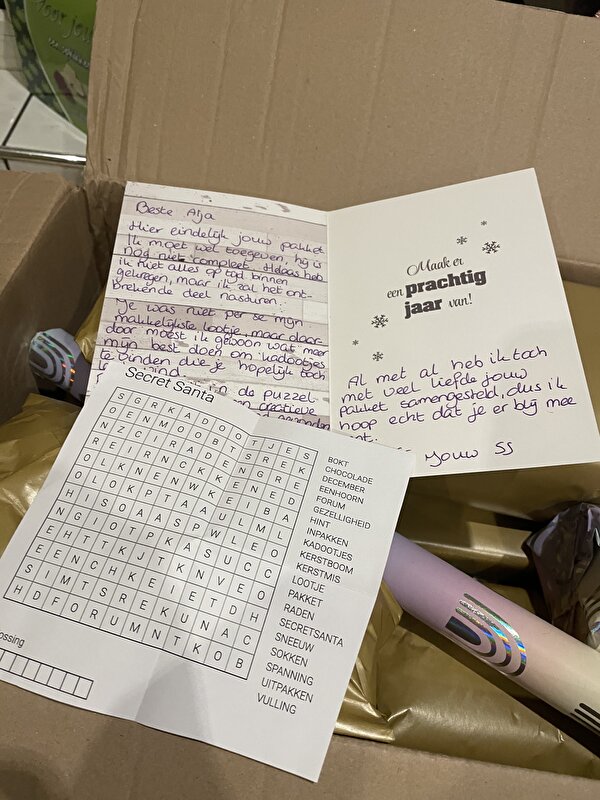 voor jou
Beste Alja
Hier eindelijk jouw pakket
Ik moet wel toegeven, hij is
nog niet compleet. Helaas heb
ik niet alles op tijd binnen
gekregen, maar ik zal het ont-
brekende deel nasturen.
Je was niet per se mijn
makkelijkste lootje, maar daar-
door moest ik gewoon wat meer
mijn best doen om kadootjes
te vinden die je hopelijk toch
in de puzzel-
en creatieve
Maak er
een prachtig
jaar van!
Al met al heb ik toch
met veel liefde jouw
pakket samengesteld, dus ik
hoop echt dat je er blij mee
Jouw SS
Secret Santa
S G R K A D O O T J E S
O E N M O O B T S R E K
N Z C I R A D E N G R E
R E I R N C K K E N E D
O L K N E N W K E I B A
O L O K P T A A U L M L
H I S O A A S P W L E O
N G I O T P K A S U C C
E H T T K J T K N V E O
E E N C H K E I E T D H
S I M T S R E K U N A C
H D F O R U M N T K O B
BOKT
CHOCOLADE
DECEMBER
EENHOORN
FORUM
GEZELLIGHEID
HINT
INPAKKEN
KADOOTJES
KERSTBOOM
KERSTMIS
LOOTJE
PAKKET
RADEN
SECRETSANTA
SNEEUW
SOKKEN
SPANNING
UITPAKKEN
VULLING